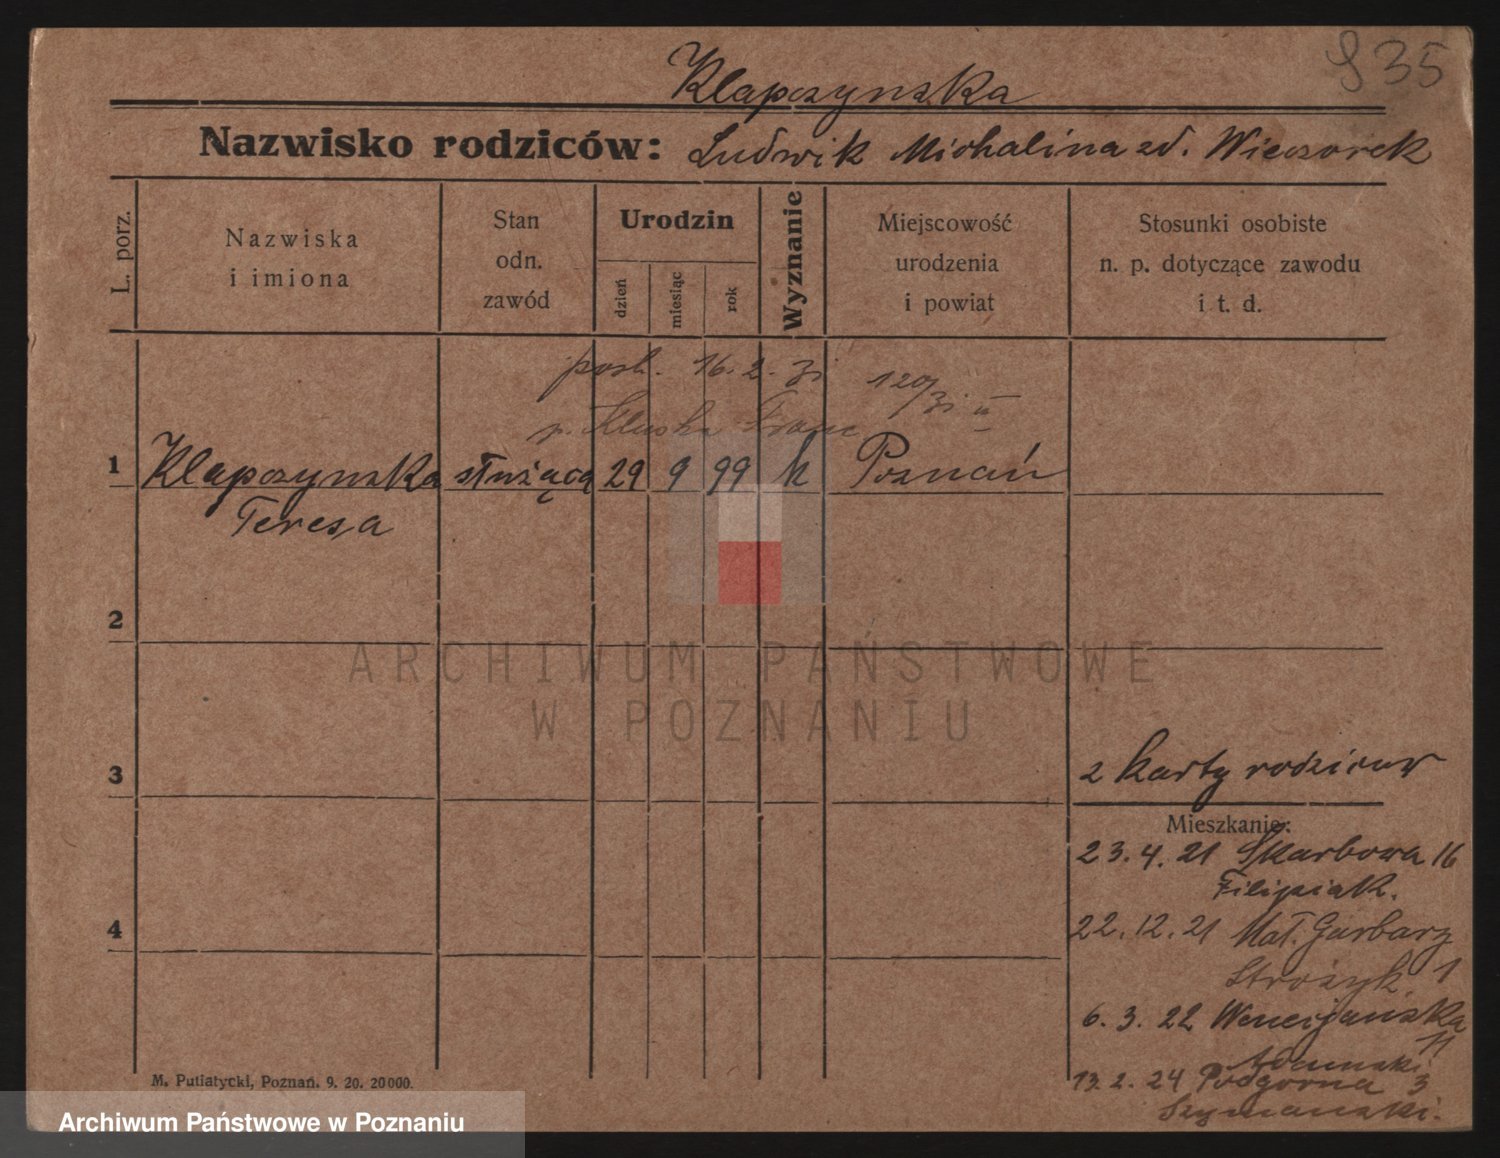 935
Klapczynska
Nazwisko rodziców: Ludwik Michalina zd. Wieczorek
L. porz.
Nazwiska
i imiona
Stan
odn.
zawód
Urodzin
dzień
miesiąc
rok
Wyznanie
Miejscowość
urodzenia
i powiat
Stosunki osobiste
n. p. dotyczące zawodu
i t. d.
16. 2. 31 120/31 II
p. Kluska Franc
1 Klapczynska służąca 29 9 99 k Poznań
Teresa
2
3
2 karty rodziców
Mieszkanie:
23. 4. 21 Skarbowa 16
Filipiak.
4
22. 12. 21 Mał. Garbary
Strożyk 1
6. 3. 22 Wenecjańska
11
Adamski
13. 2. 24 Podgórna 3
Szymanski.
M. Putiatycki, Poznań. 9. 20. 20000.
ARCHIWUM PAŃSTWOWE
W POZNANIU
Archiwum Państwowe w Poznaniu